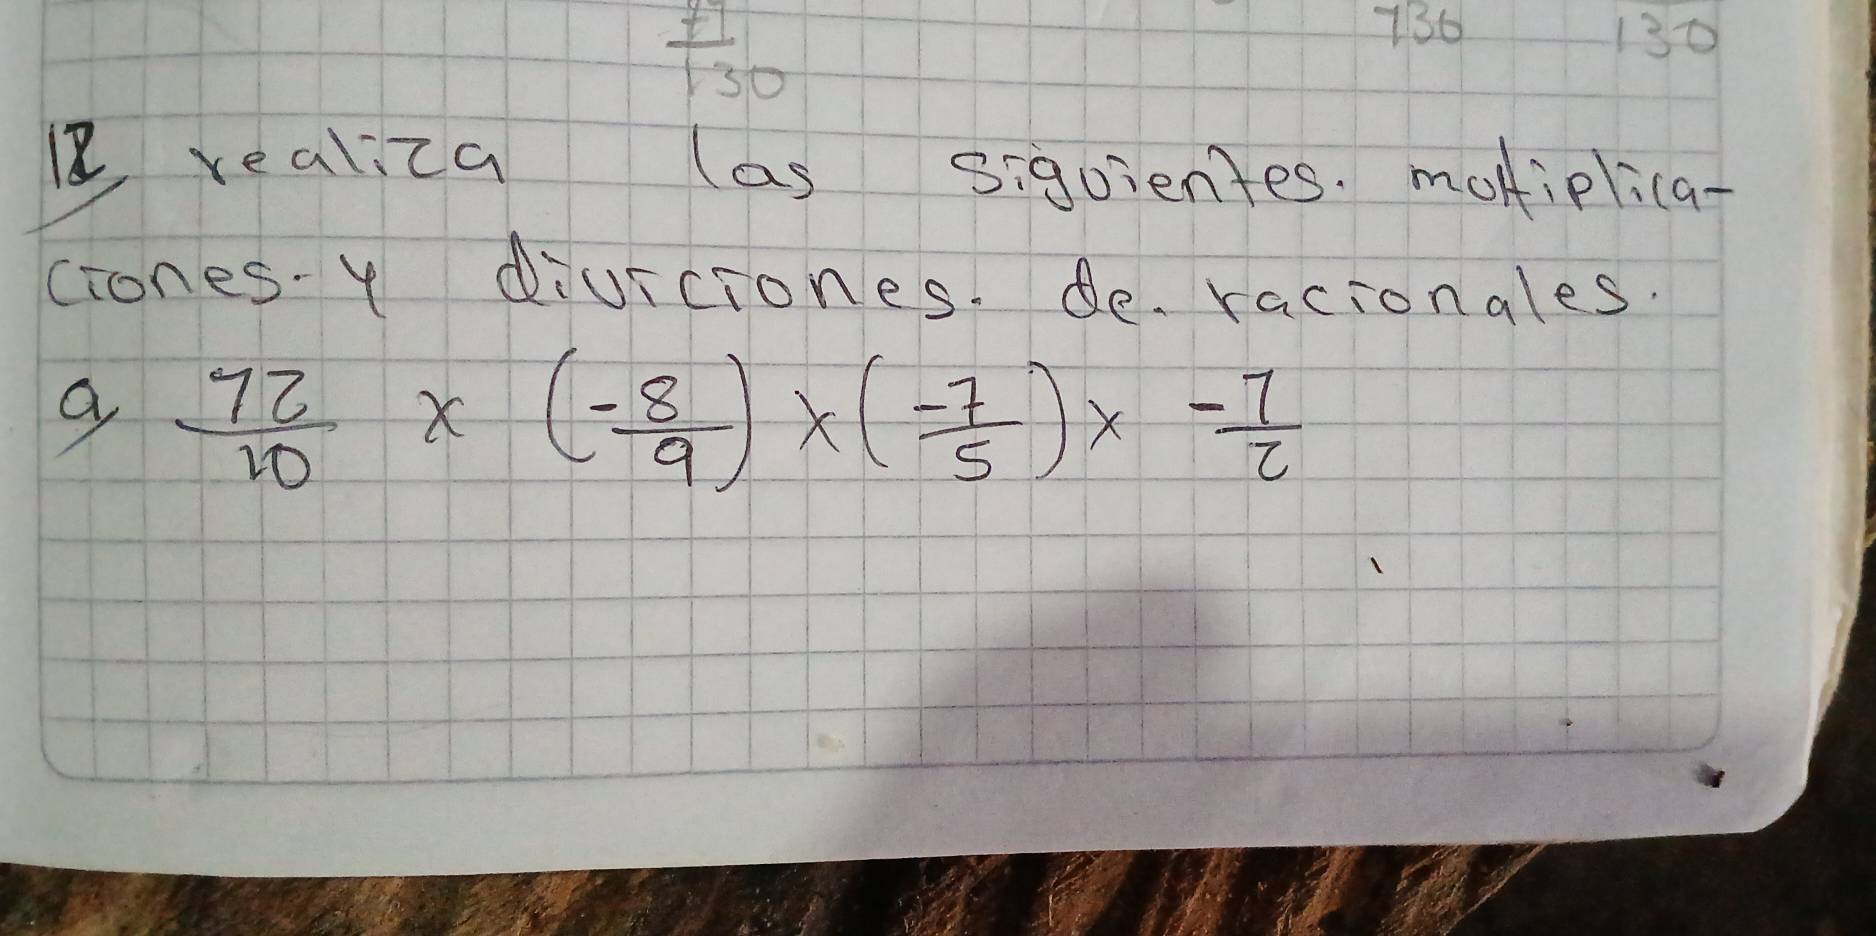 130 130
12 realiza las siguientes. moltiplica-
ciones. y diviciones. de. racionales.
a, 12/10 x (-8/9) x (-7/5) x -1/2